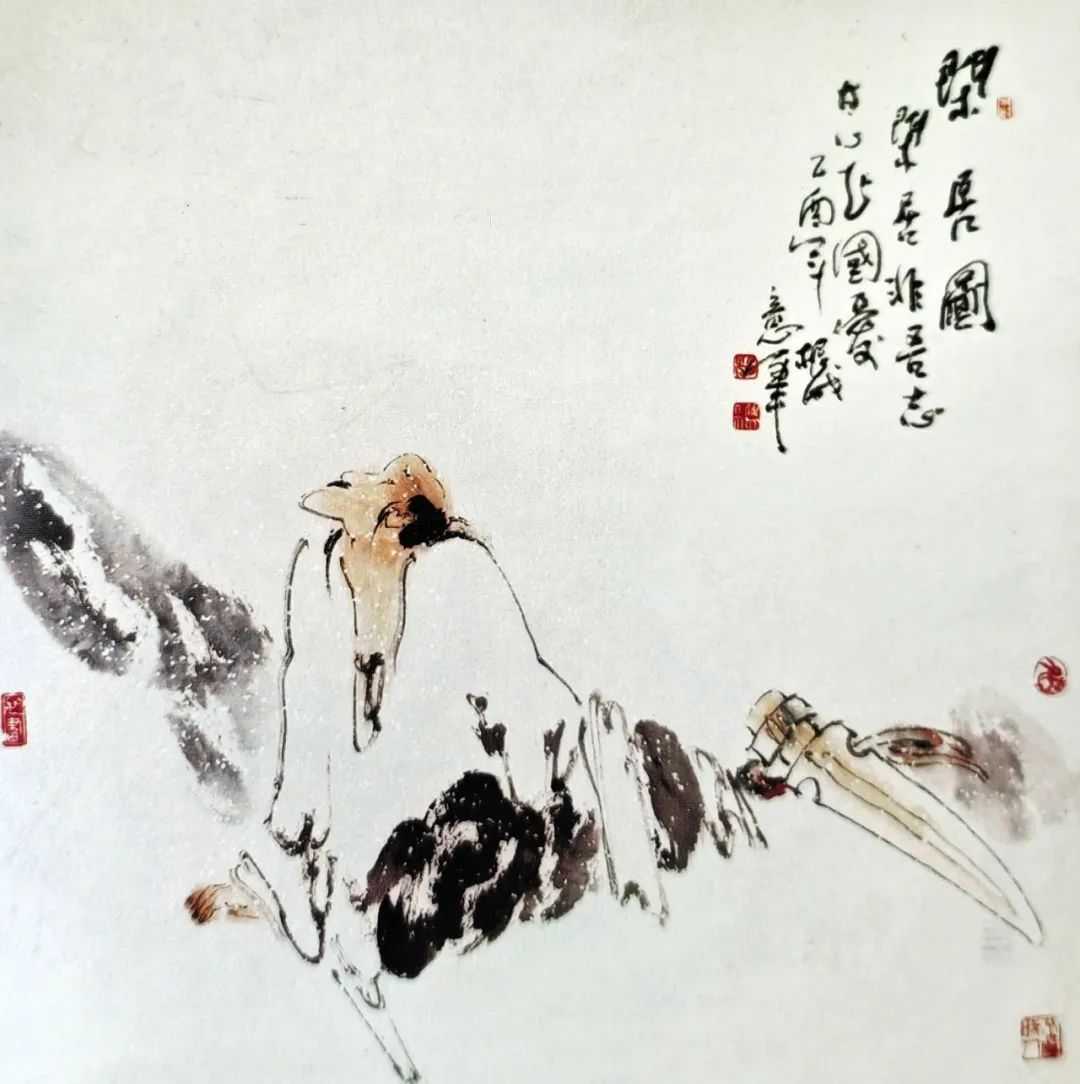 閑居圖
閑居非吾志
甘心赴國憂
乙酉年根成
意筆